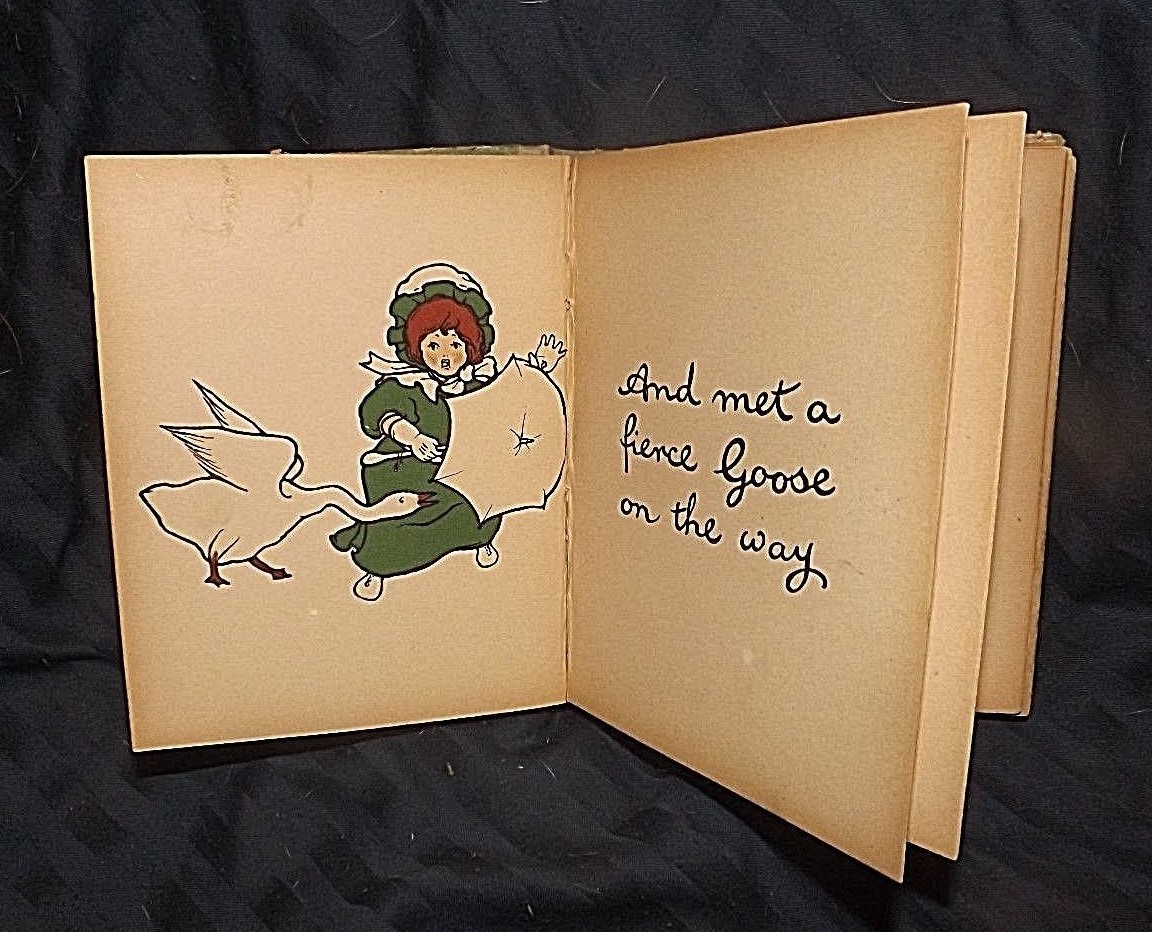 And met a
fierce Goose
on the way